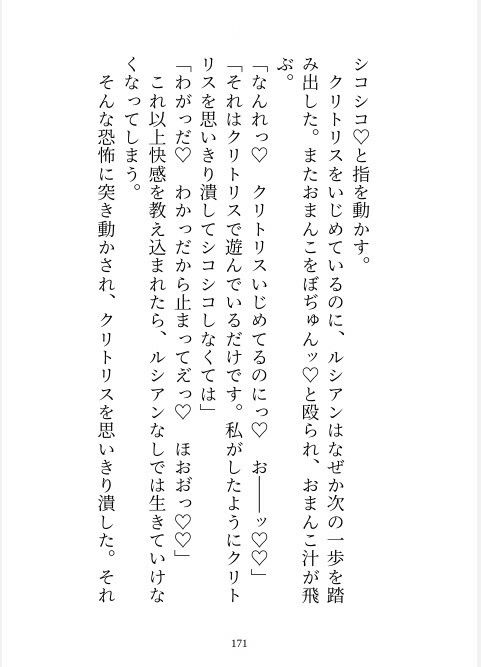 シコシコ♡と指を動かす。
　クリトリスをいじめているのに、ルシアンはなぜか次の一歩を踏
み出した。またおまんこをぼぢゅんッ♡と殴られ、おまんこ汁が飛
ぶ。
「なんれっ♡　クリトリスいじめてるのにっ♡　お――ッ♡♡」
「それはクリトリスで遊んでいるだけです。私がしたようにクリト
リスを思いきり潰してシコシコしなくては」
「わがっだ♡　わかっだから止まってえ゛っ♡　ほおお゛っ♡♡」
　これ以上快感を教え込まれたら、ルシアンなしでは生きていけな
くなってしまう。
　そんな恐怖に突き動かされ、クリトリスを思いきり潰した。それ
171